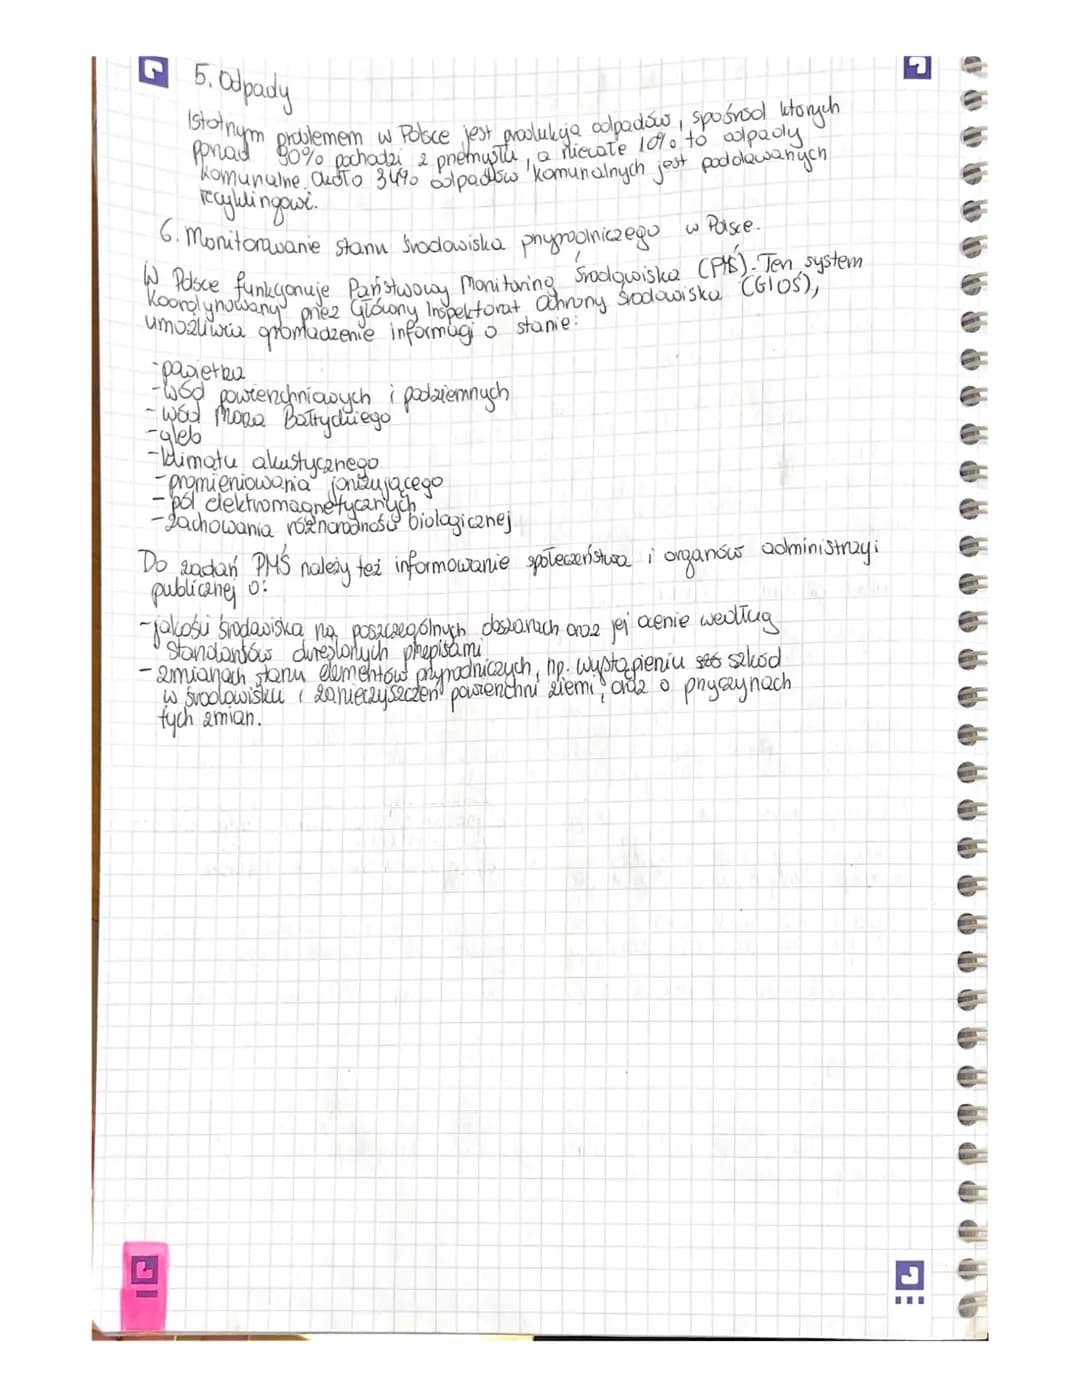 5. Odpady
Istotnym problemem w Polsce jest produkcja odpadów, spośród których
ponad 90% pochodzi z przemysłu, a niecałe 10% to odpady
komunalne. Około 34% odpadów komunalnych jest poddawanych
recyklingowi.
6. Monitorowanie stanu środowiska przyrodniczego w Polsce.
W Polsce funkcjonuje Państwowy Monitoring Środowiska (PMŚ). Ten system
koordynowany przez Główny Inspektorat Ochrony Środowiska (GIOŚ),
umożliwia gromadzenie informacji o stanie:
-powietrza
-wód powierzchniowych i podziemnych
-wód Morza Bałtyckiego
-gleb
-klimatu akustycznego
-promieniowania jonizującego
-pól elektromagnetycznych
-zachowania różnorodności biologicznej
Do zadań PMŚ należy też informowanie społeczeństwa i organów administracji
publicznej o:
-jakości środowiska na poszczególnych obszarach oraz jej ocenie według
standardów określonych przepisami
-zmianach stanu elementów przyrodniczych, np. wystąpieniu szkód
w środowisku i zanieczyszczeń powierzchni ziemi, oraz o przyczynach
tych zmian.